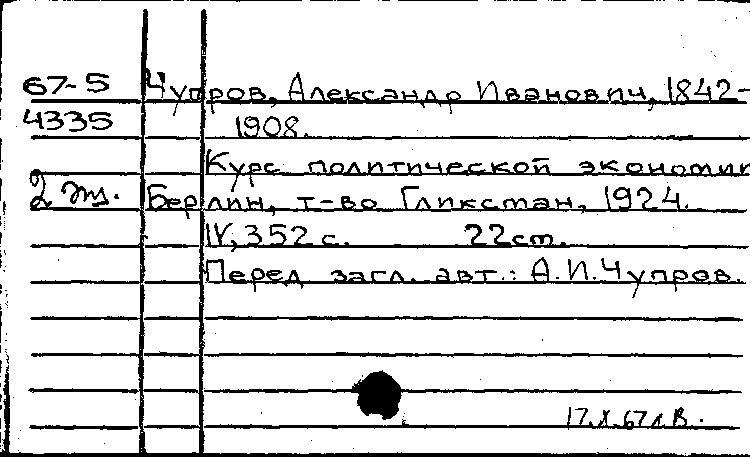 67-5 Чупров, Александр Иванович, 1842-
4335 1908.
Курс политической экономии
2 эт. Берлин, т-во Гликсман, 1924.
IV, 352 с. 22 см.
Перед загл. авт.: А.И.Чупров.
17.X.67 г. В.